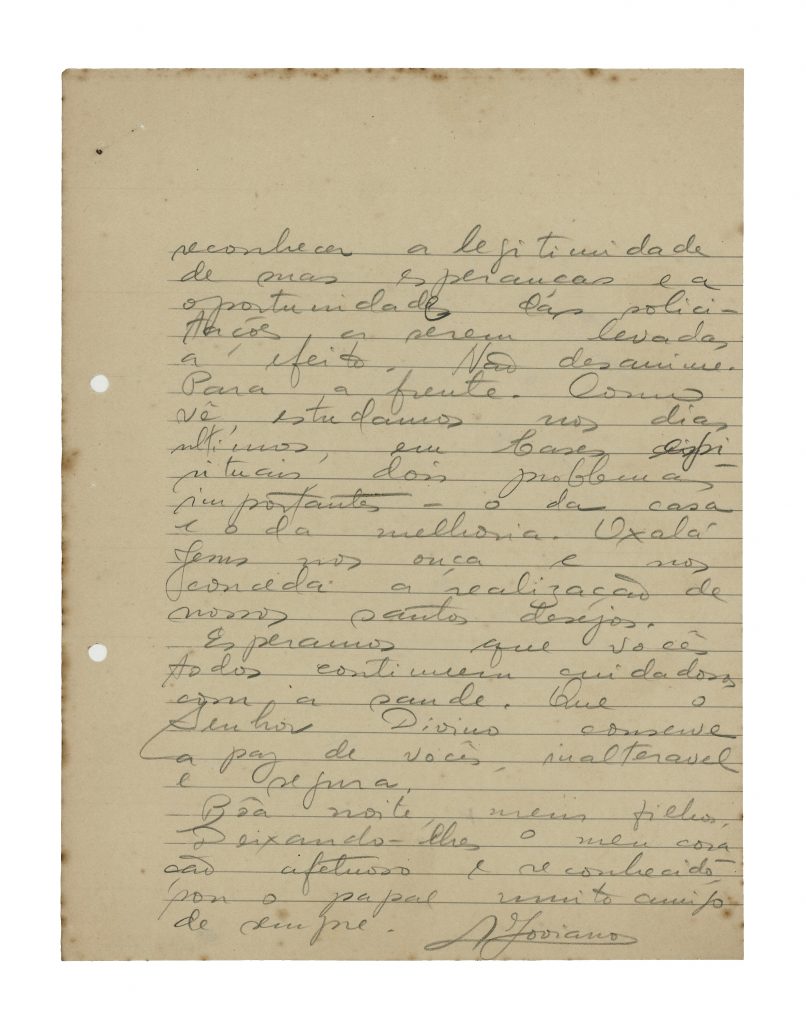 reconhecer a legitimidade
de suas esperanças e a
oportunidade das solici-
tações a serem levadas
a efeito. Não desanime.
Para a frente. Como
vê estudamos nos dias
ultimos, em bases espi
rituais, dois problemas
importantes - o da casa
e o da melhoria. Oxalá
Jesus nos ouça e nos
conceda a realização de
nossos santos desejos.
Esperamos que vocês
todos continuem cuidadosos
com a saude. Que o
Senhor Divino conserve
a paz de vocês, inalteravel
e segura.
Bôa noite, meus filhos.
Deixando-lhes o meu cora
ção afetuoso e reconhecido
sou o papae muito amigo
de sempre. A Joviano